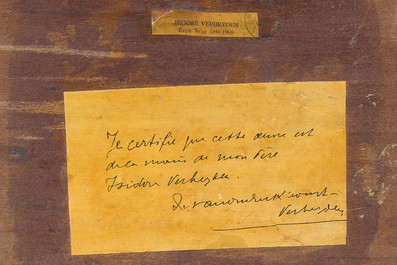 ISIDORE VERHEYDEN
École Belge 1846-1905
Je certifie que cette œuvre est
de la main de mon Père
Isidore Verheyden.
Verheyden